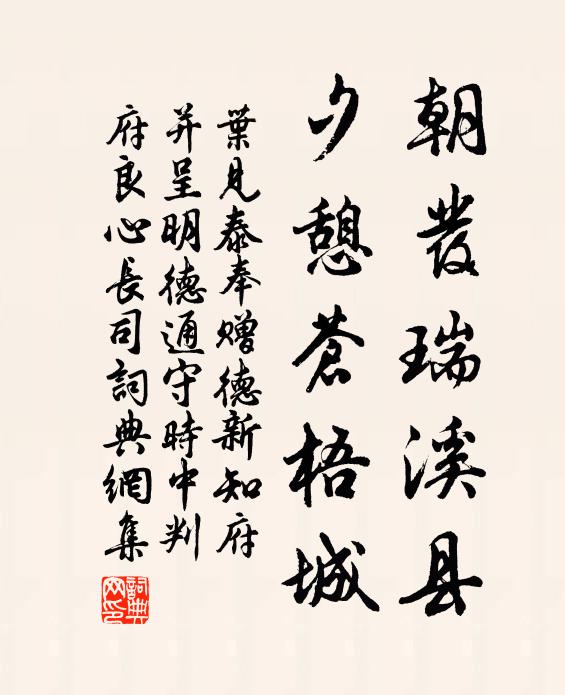 朝發瑞溪县
夕憩蒼梧城
葉見泰奉贈德新知府
并呈明德通守時中判
府良心長司詞典網集
詞典网印